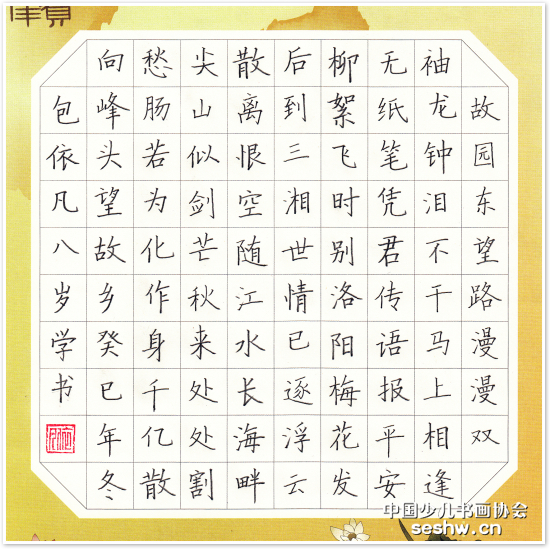 故园东望路漫漫双
袖龙钟泪不干马上相逢
无纸笔凭君传语报平安
柳絮飞时别洛阳梅花发
后到三湘世情已逐浮云
散离恨空随江水长海畔
尖山似剑芒秋来处处割
愁肠若为化作身千亿散
向峰头望故乡癸巳年冬
包依凡八岁学书
中国少儿书画协会
seshw.cn